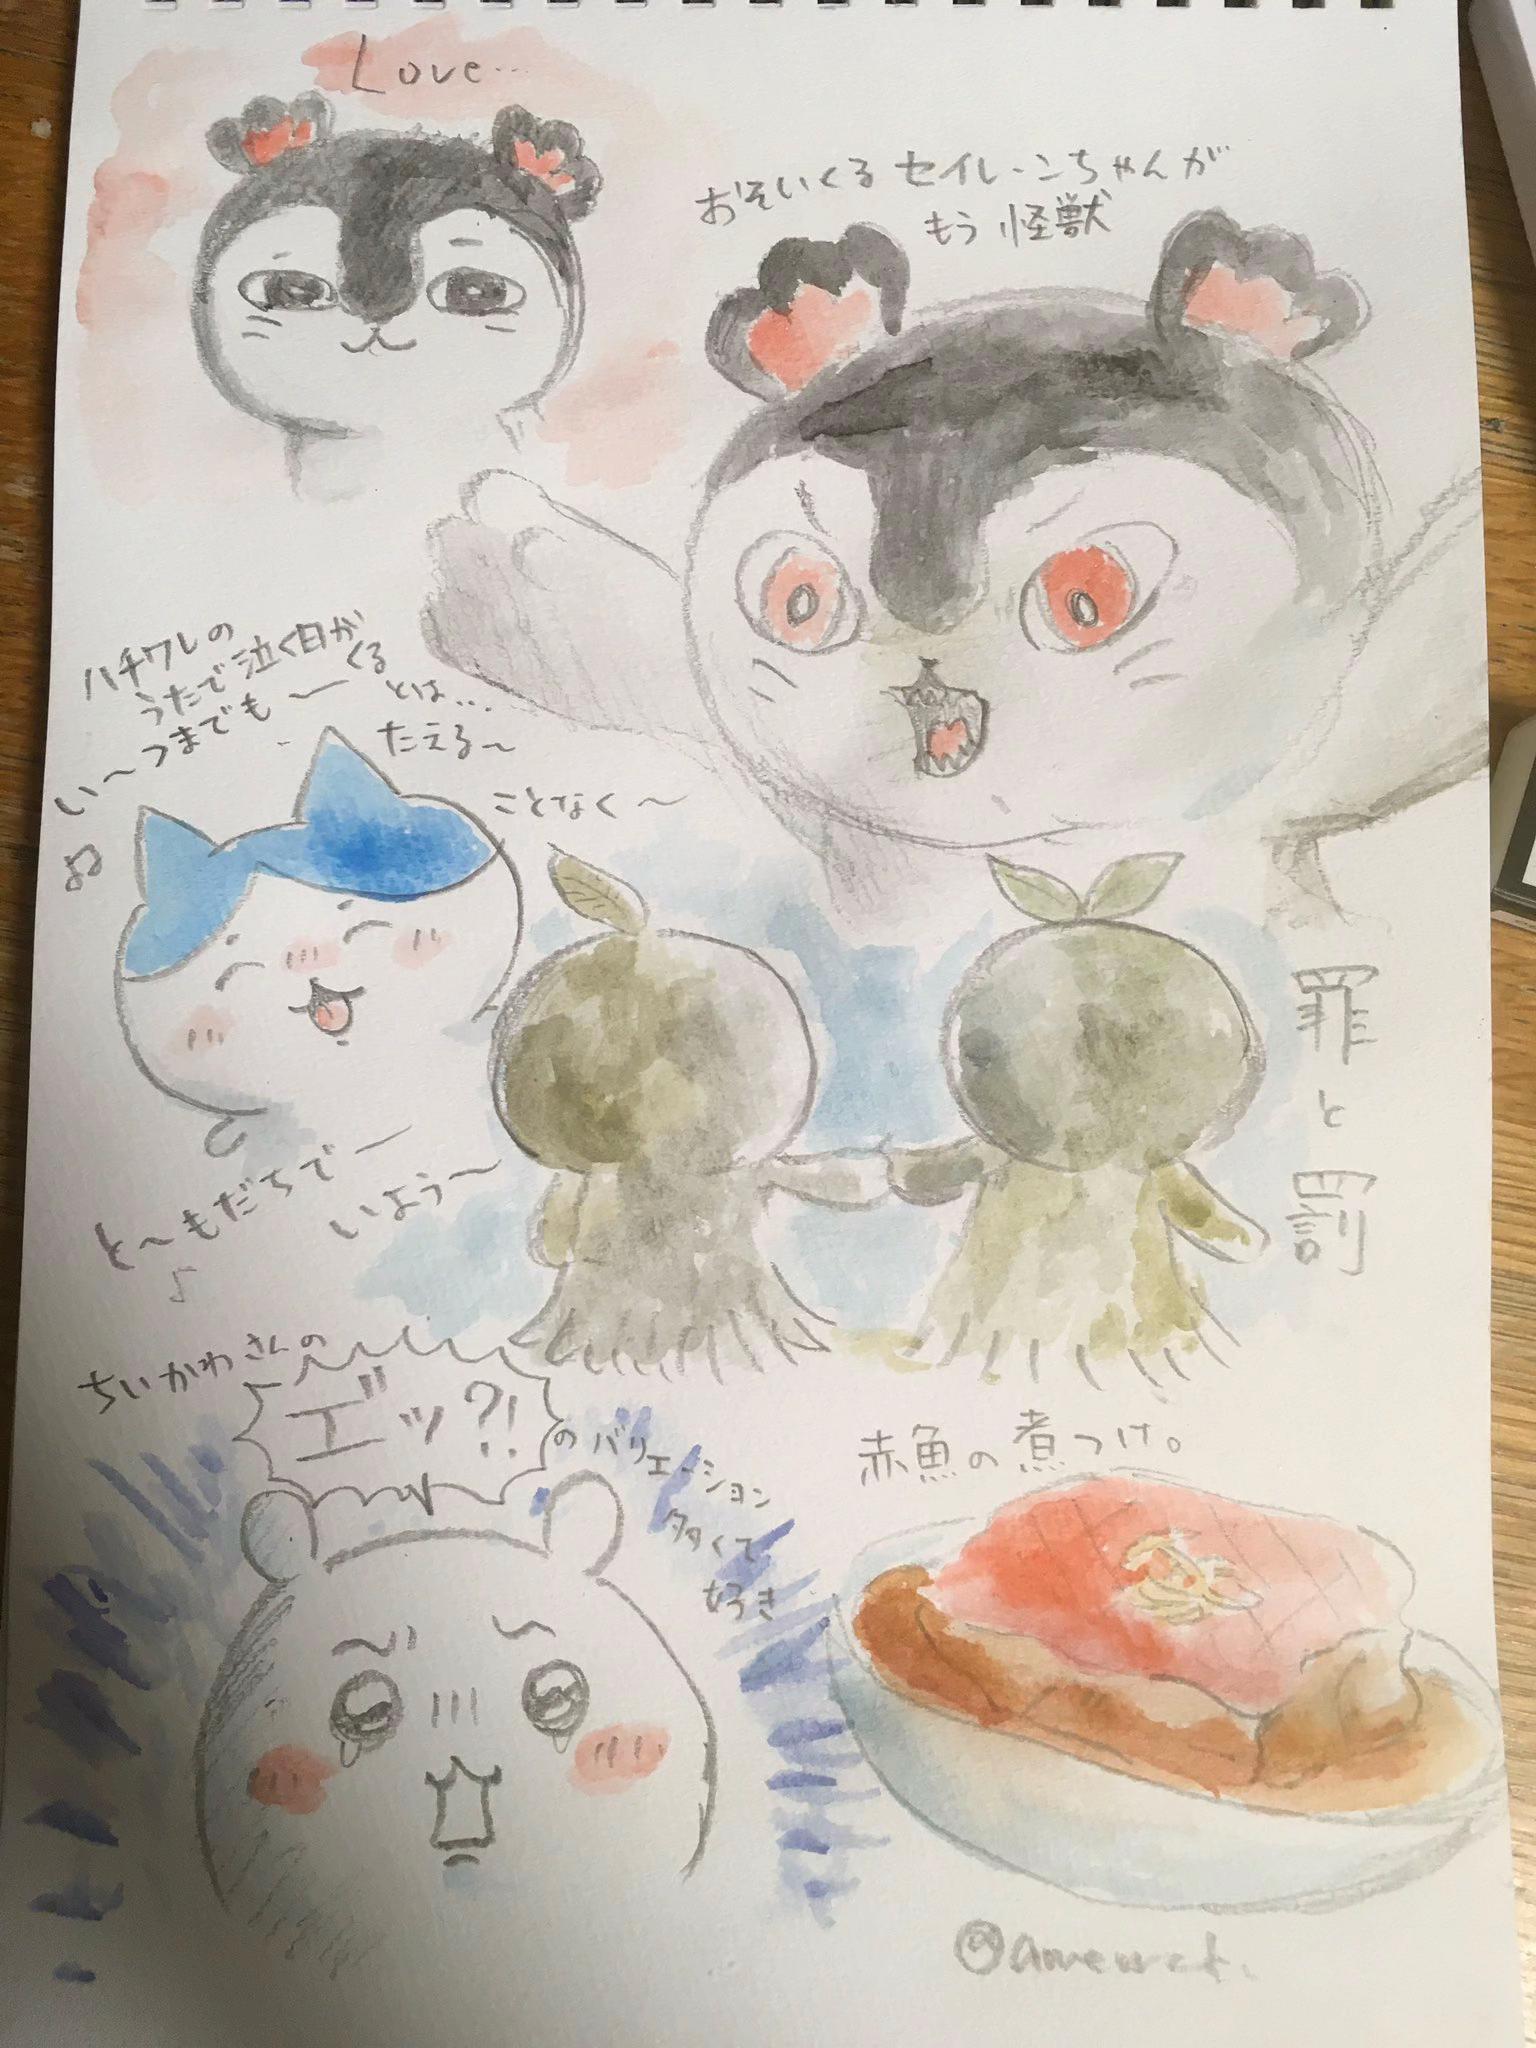 Love...
おそいくるセイレーンちゃんが
もう怪獣
ハチワレの
うたで泣く日が
くる
とは...
い〜つまでも〜
たえる〜
ことなく〜
と〜もだちで〜
いよう〜
♪
罪と罰
ちいかわさんの
エ゛ッ?!
のバリエーション
多くて
好き
赤魚の煮つけ。